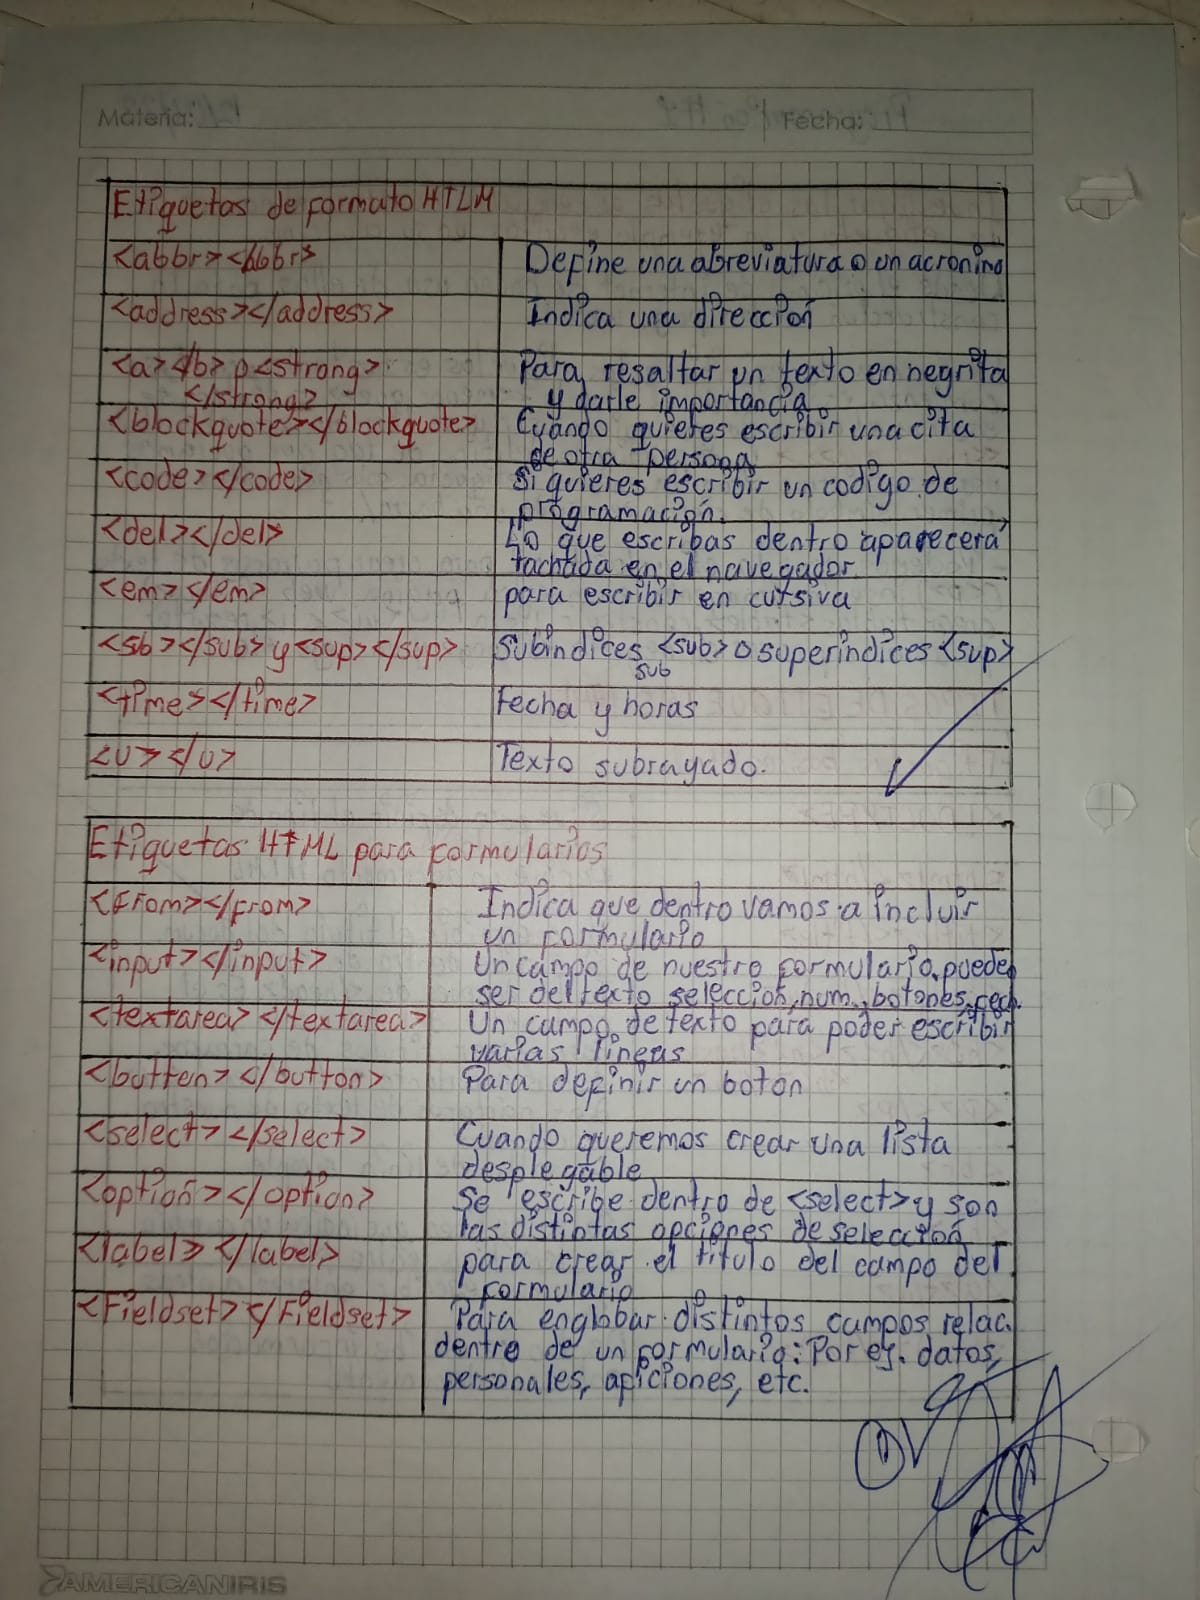 Materia: Fecha:
Etiquetas de formato HTLM
<abbr></bbr> Define una abreviatura o un acronimo
<address></address> Indica una dirección
<a></b> o <strong> Para resaltar un texto en negrita
</strong> y darle importancia
<blockquote></blockquote> Cuando quieres escribir una cita
de otra persona
<code></code> Si quieres escribir un codigo de
programación.
<del></del> Lo que escribas dentro aparecera
tachada en el navegador
<em></em> para escribir en cursiva
<sb></sub> y <sup></sup> Subindices <sub> o superindices <sup>
sub
<time></time> Fecha y horas
<u></u> Texto subrayado.
Etiquetas HTML para formularios
<from></from> Indica que dentro vamos a incluir
un formulario
<input></input> Un campo de nuestro formulario, puede
ser del texto selección, num, botones, fech.
<textarea></textarea> Un campo de texto para poder escribir
varias lineas
<button></button> Para definir un boton
<select></select> Cuando queremos crear una lista
desplegable
<option></option> Se escribe dentro de <select> y son
las distintas opciones de selección
<label></label> para crear el titulo del campo del
formulario
<Fieldset></Fieldset> Para englobar distintos campos relac.
dentro de un formulario: Por ej. datos,
personales, apiciones, etc.
AMERICANIRIS